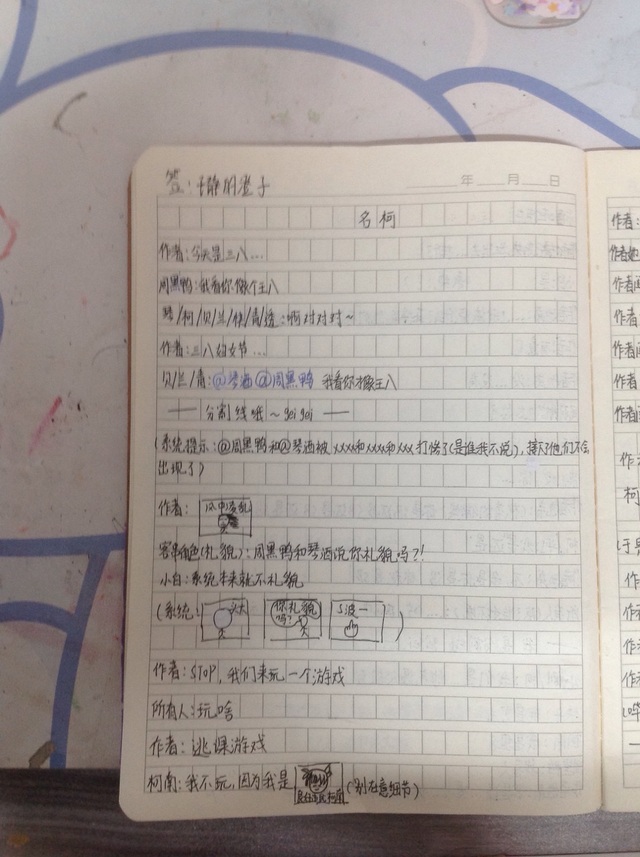 签:静的澄子
年 月 日
名柯
作者:今天是三八...
周黑鸭:我看你像个王八
琴/柯/贝/兰/秋/青/透:啊对对对~
作者:三八妇女节...
贝/兰/青:@琴酒@周黑鸭 我看你才像王八
—— 分割线哦~gei gei ——
(系统提示:@周黑鸭和@琴酒被xxxx和xxxx和xxx打傍了(是谁我不说),接下来他们不会
出现了)
作者: 风中凌乱
客串角色(礼貌):周黑鸭和琴酒说你礼貌吗?!
小白:系统本来就不礼貌
(系统: 你礼貌吗? 5波一)
作者:STOP,我们来玩一个游戏
所有人:玩啥
作者:逃课游戏
柯南:我不玩,因为我是 (别在意细节)
作者:
作者
作者
作者
作者
作
柯
于
作
作
作
作